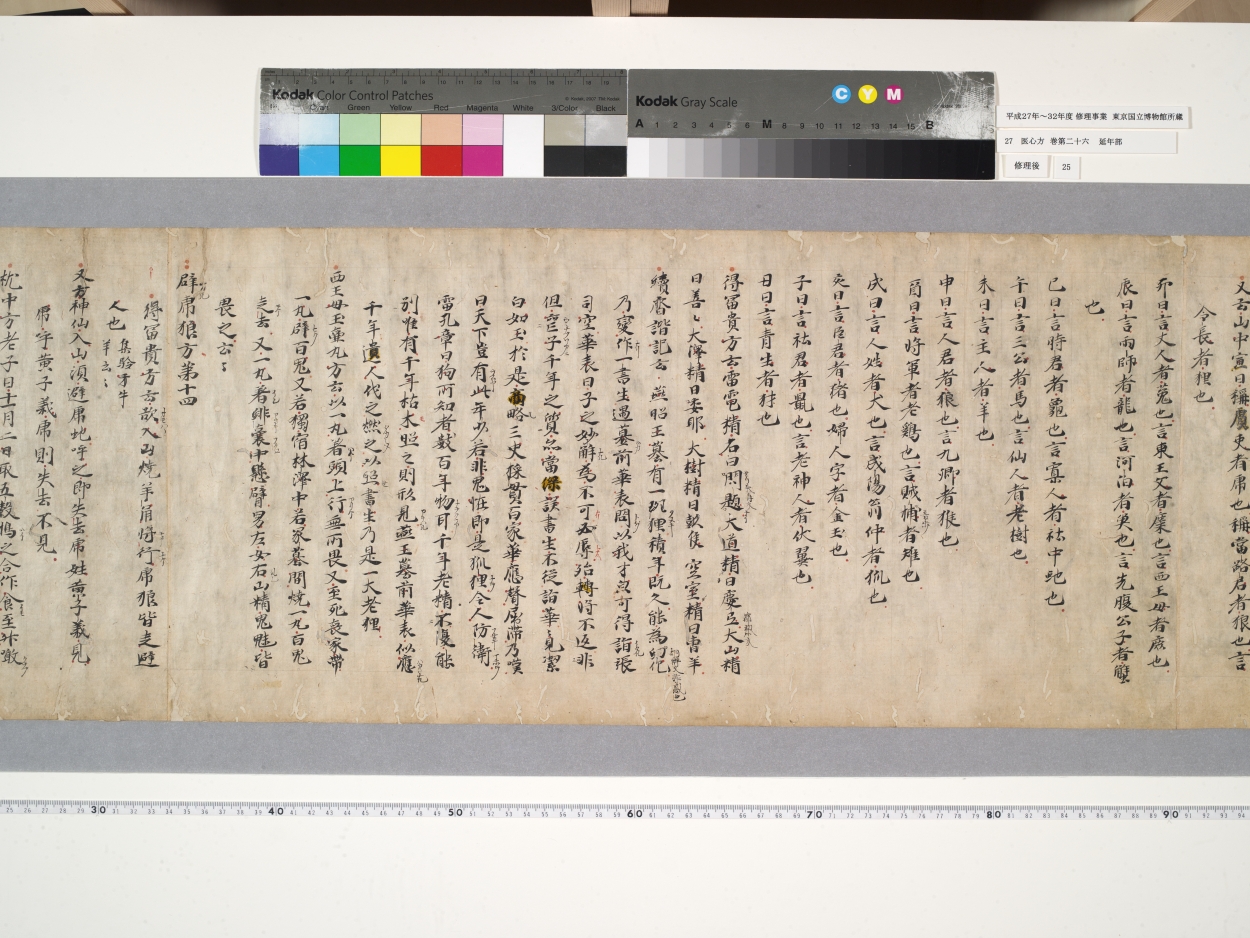 Kodak Color Control Patches
Cyan Green Yellow Red Magenta White 3/Color Black
Kodak Gray Scale
C Y M
A 1 2 3 4 5 6 M 8 9 10 11 12 13 14 15 B
平成27年～32年度 修理事業 東京国立博物館所蔵
27 医心方 巻第二十六 延年部
修理後 25
又云山中寅日稱虞吏者虎也稱當路君者狼也言
令長者狸也
卯日言丈人者兔也言東王父者麋也言西王母者鹿也
辰日言雨師者龍也言河伯者魚也言无腹公子者蟹
也
巳日言時君者龜也言寡人者社中虵也
午日言三公者馬也言仙人者老樹也
未日言主人者羊也
申日言人君者猴也言九卿者猨也
酉日言將軍者老鷄也言賊捕者雉也
戌日言人姓者犬也言成陽翁仲者狐也
亥日言臣君者猪也婦人字者金玉也
子日言社君者鼠也言老神人者伏翼也
丑日言書生者牛也
得富貴方云雷電精名曰閃題大道精曰慶忌大山精
曰善大澤精曰委耶大樹精曰 空室精曰 羊
續齊諧記云燕昭王墓有一斑狸積年既久能為幻化
乃變作一書生過墓前華表問以我才 可得詣張
司空華表曰子之妙解為不可 辱殆將不返非
但 子千年之質亦當 誤書生不從詣華見潔
白如玉於是商略三史探貫百家華應聲屈滯乃嘆
曰天下豈有此年少若非鬼恠即是狐狸令人防衛
雷孔章曰狗所知者數百年物耳千年老精不復能
別惟有千年枯木照之則形見燕王墓前華表似應
千年遣人伐之燃之以照書生乃是一大老狸
西王母玉 丸方云以一丸着頭上行無所畏又至死喪家帶
一丸辟百鬼又若獨宿林澤中若冢墓間燒一丸百鬼
走去又一丸着緋囊中懸臂男左女右山精鬼魅皆
畏之云々
辟虎狼方第十四
得富貴方云欲入山燒羊角將行虎狼皆走避
人也
羊云々
又 神仙入山須避虎地呼之即失去虎姓黄子義見
虎呼黄子義虎則失去不見
枕中方老子曰十一月二日取五穀 之合作食至 噉
30 40 50 60 70 80 90